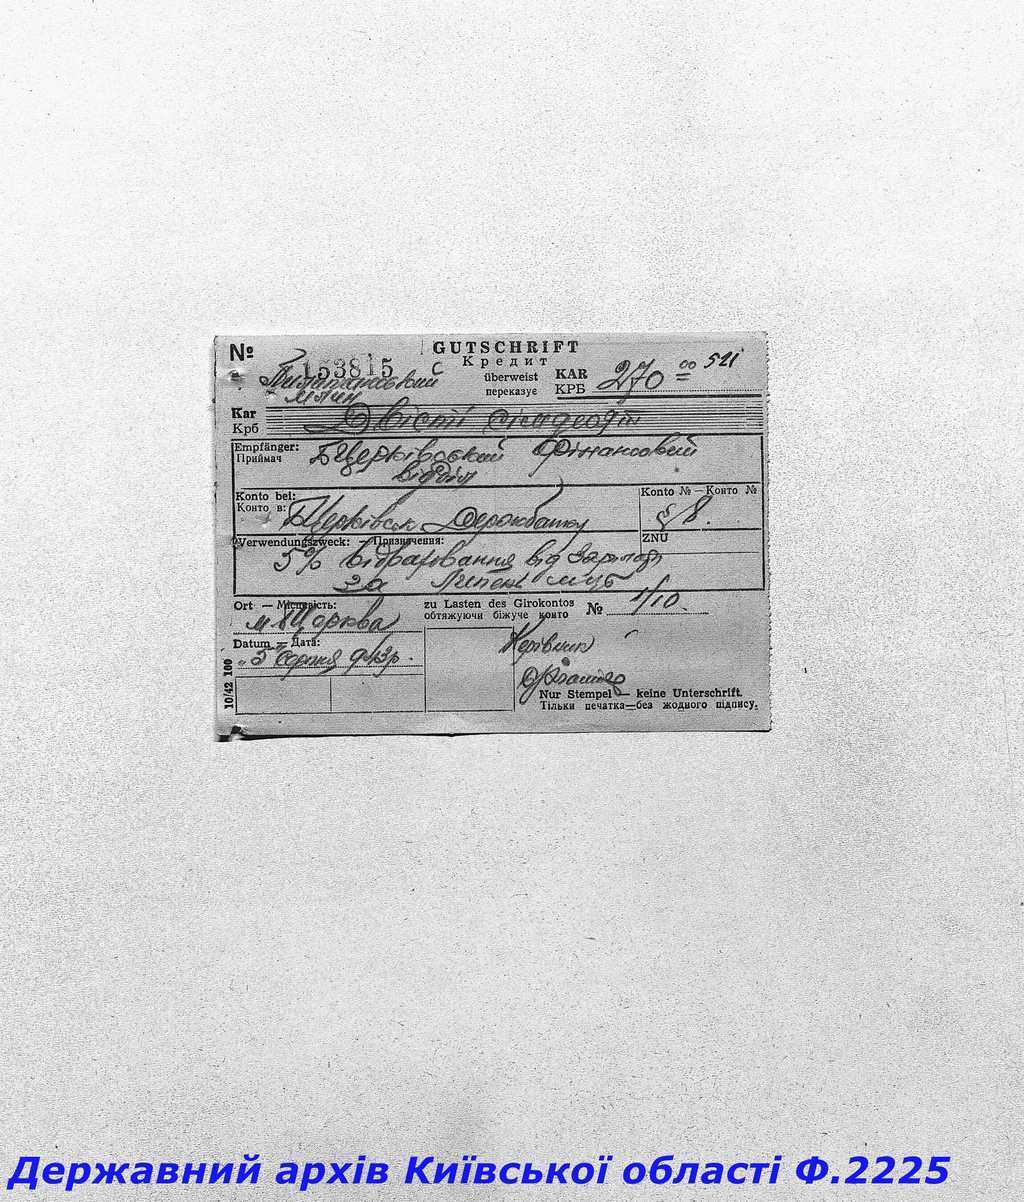 № 153815 С
GUTSCHRIFT
Кредит
млин
überweist
переказує
KAR
КРБ 270 00 521
Kar
Крб Двісті сімдесят
Empfänger:
Приймач Б Церківський Фінансовий
відділ
Konto bei:
Конто в: Б Церківськ Держбанку
Konto № — Конто №
§ 8.
ZNU
Verwendungszweck: — Призначення:
5% відрахування від Зарплати
за Липень м-ць
Ort — Місцевість:
м. БЦерква
zu Lasten des Girokontos
обтяжуючи біжуче конто № 1/10.
Datum — Дата:
„5 Серпня 943р.
Керівник
Nur Stempel — keine Unterschrift.
Тільки печатка—без жодного підпису.
10/42 100
Державний архів Київської області Ф.2225